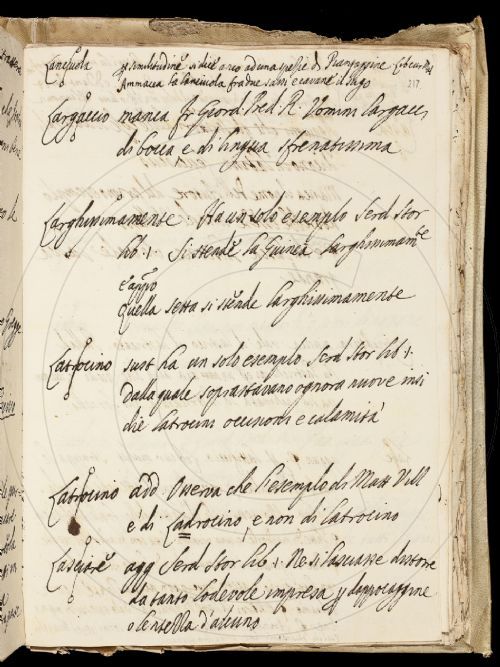 Lanciuola p similitudine si dice anco ad una spezie di Piantaggine
Ammacca la lanciuola fra due sassi e cavane il sugo
217.
Largaccio manca fr Giord Pred R. Uomini largacci
di bocca e di lingua sfrenatissima
Larghissimamente. Ha un solo esempio Serd Stor
lib. 1. Si stende la Guinea larghissimamte
e appo
Quella setta si stende larghissimamente
Latrocino sust ha un solo esempio Serd Stor lib 1.
Dalla quale soprastavano ognora nuove insi
die latrocini occisioni e calamità
Latrocino add Osserva che l'esempio di Matt Vill
è di Ladrocino, e non di latrocino
Lasciare agg Serd Stor lib 1. Ne si lasciasse distorre
da tanto lodevole impresa p dappocaggine
o lentezza d'alcuno